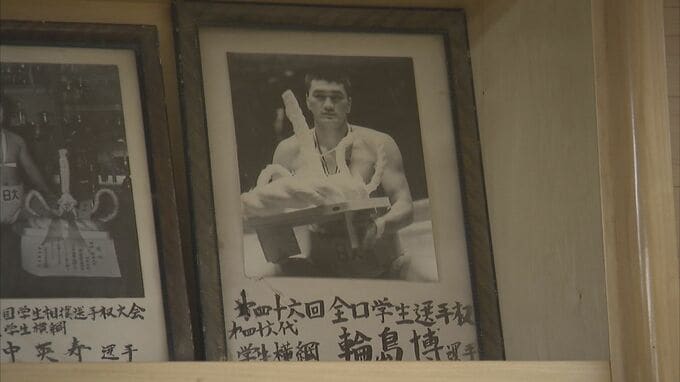 国学生相撲選手権大会
学生横綱
中英寿 選手
日大
第四十六回 全口学生選手权
第四十六代
学生横綱 輪島博 選手